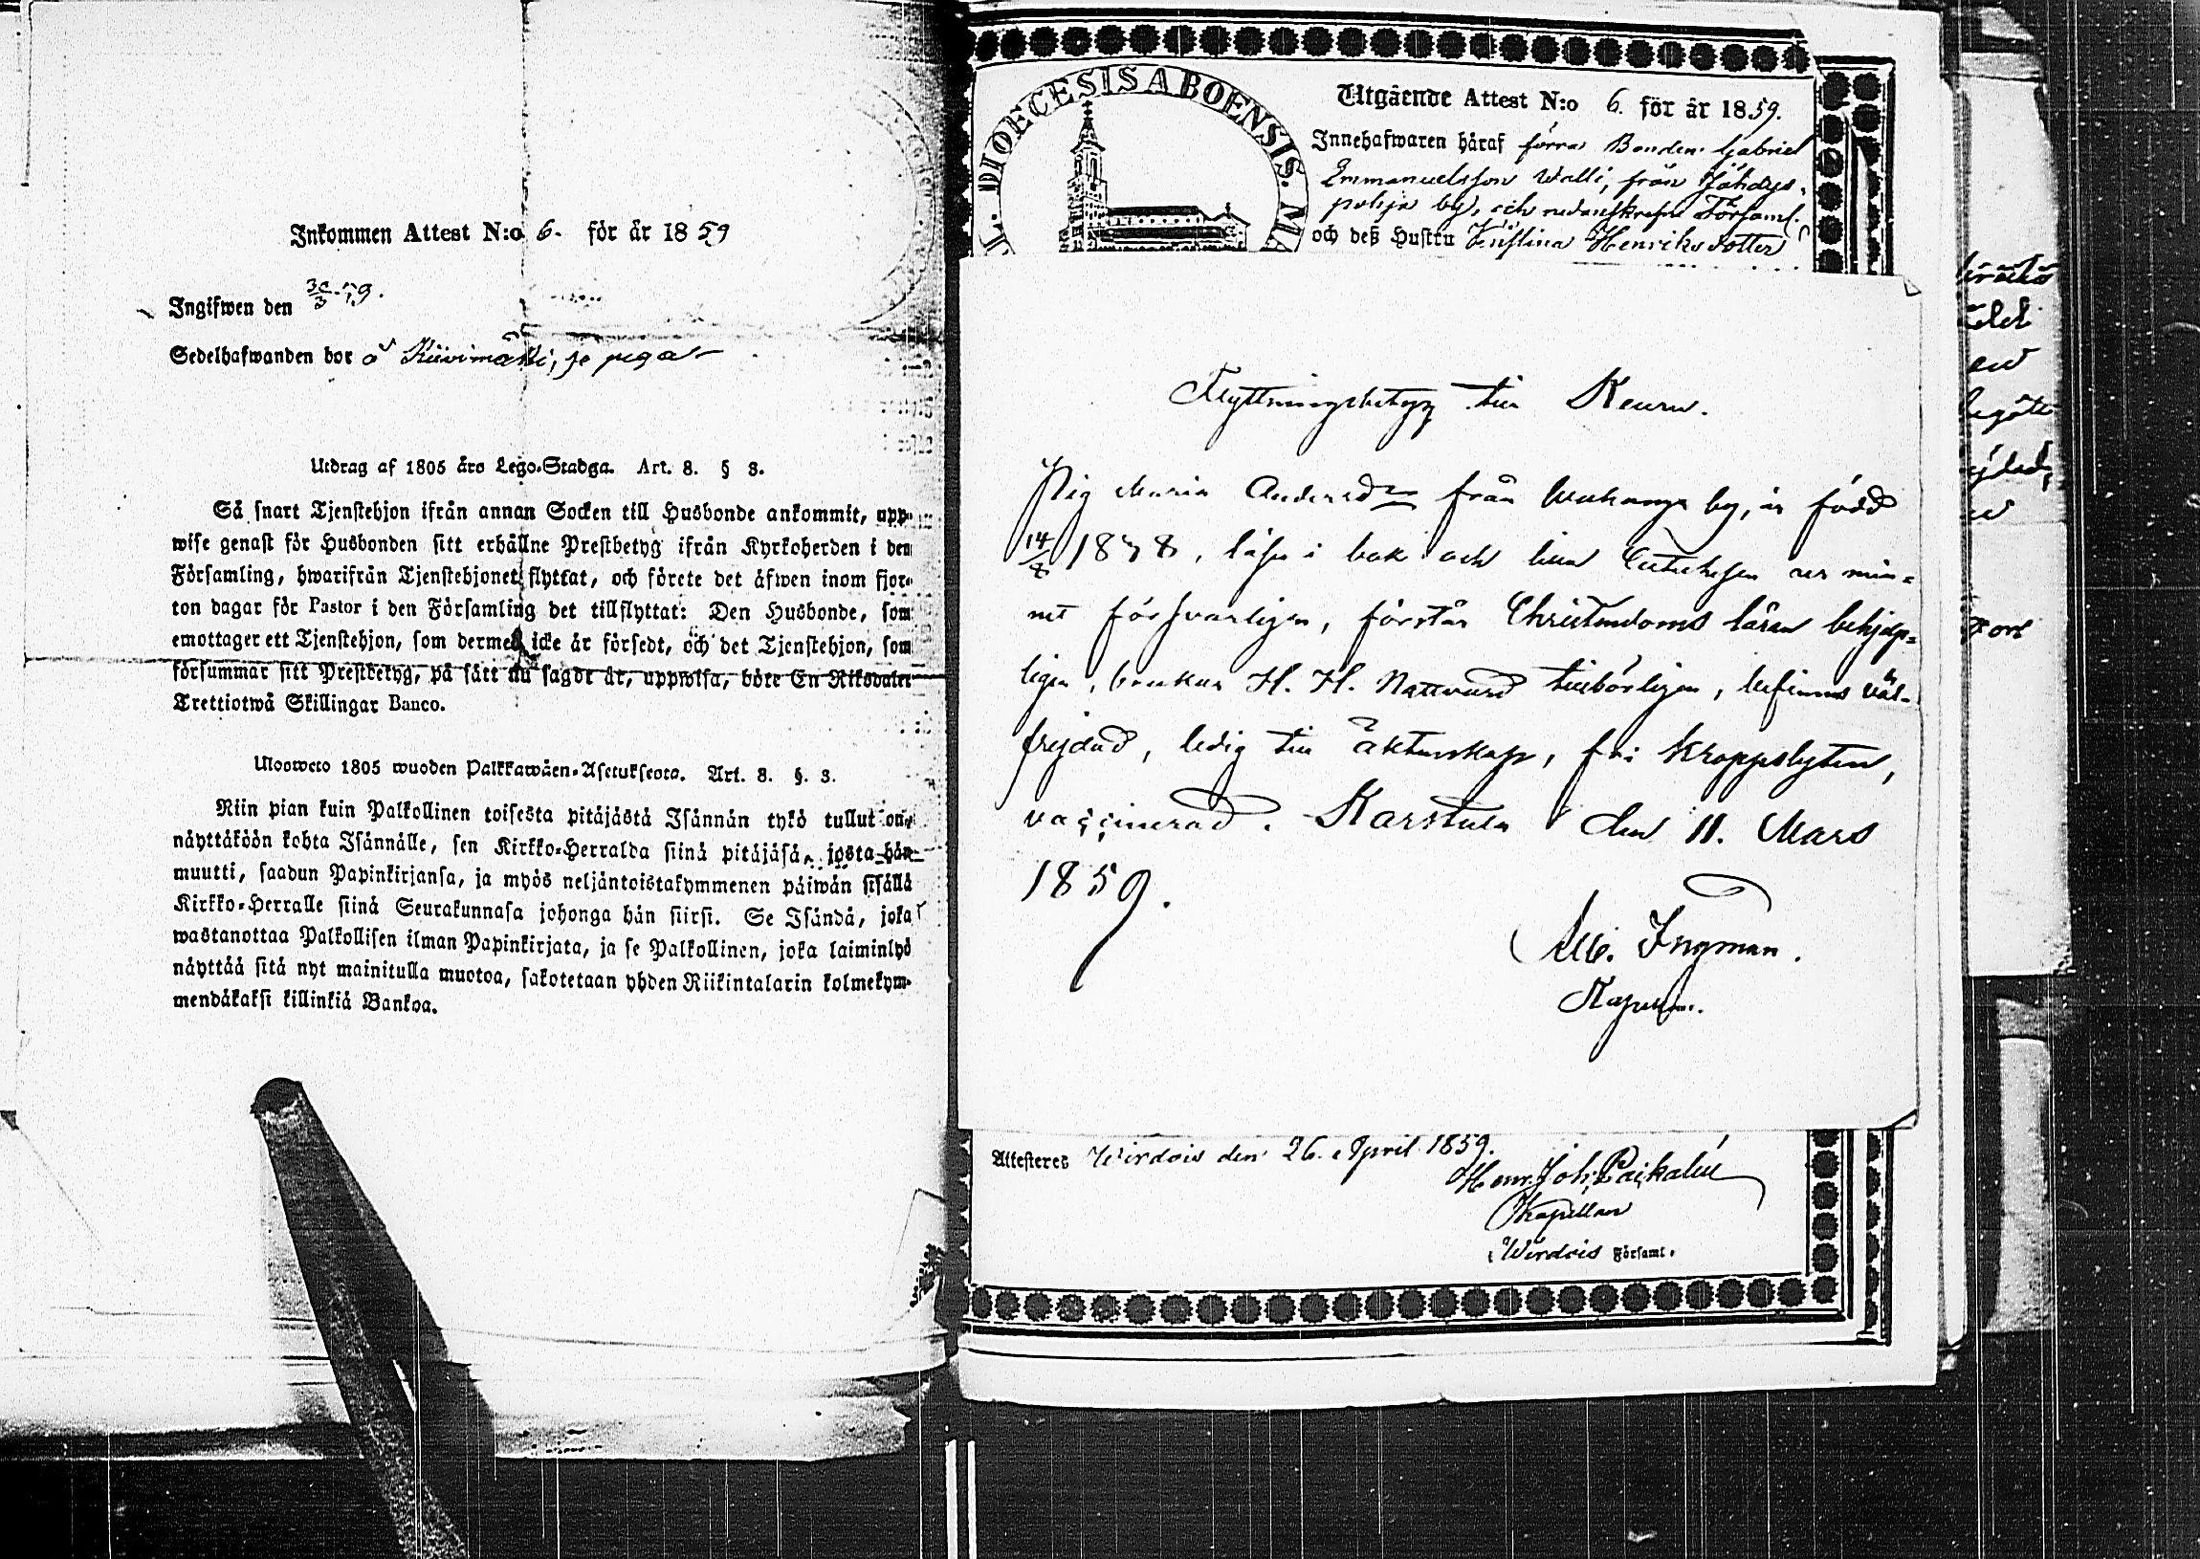 Inkommen Attest N:o 6. för år 1859
Ingifwen den 30/3 59.
Sedelhafwanden bor å Kiivimäki, se pigar
Utdrag af 1805 års Lego-Stadga. Art. 8. § 3.
Så snart Tjenstehjon ifrån annan Socken till Husbonde ankommit, upp-
wise genast för Husbonden sitt erhållne Prestbetyg ifrån Kyrkoherden i den
Församling, hwarifrån Tjenstehjonet flyttat, och förete det äfwen inom fjor-
ton dagar för Pastor i den Församling det tillflyttat: Den Husbonde, som
emottager ett Tjenstehjon, som dermed icke är försedt, och det Tjenstehjon, som
försummar sitt Prestbetyg, på sätt nu sagdt är, uppwisa, böte En Riksdaler
Trettiotwå Skillingar Banco.
Ulosweto 1805 wuoden Palkkawäen-Asetuksesta. Art. 8. §. 3.
Niin pian kuin Palkollinen toisesta pitäjästä Isännän tykö tullut on,
näyttäköön kohta Isännälle, sen Kirkko-Herralda siinä pitäjäsä, josta hän
muutti, saadun Papinkirjansa, ja myös neljäntoistakymmenen päiwän sisällä
Kirkko-Herralle siinä Seurakunnasa johonga hän siirsi. Se Isändä, joka
wastanottaa Palkollisen ilman Papinkirjata, ja se Palkollinen, joka laiminlyö
näyttää sitä nyt mainitulla muotoa, sakotetaan yhden Riikintalarin kolmekym-
mendäkaksi killinkiä Bankoa.
L. DIOECESIS ABOENSIS. MA
Utgående Attest N:o 6. för år 1859.
Innehafwaren häraf förra Bonden Gabriel
Emmanuelsson Walli, från Jähdys-
pohja by, och nedanskrefne Församl.
och deß Hustru Kristina Henriksdotter
Flyttningsbetyg till Keuru.
Pig Maria Andersdr från Wahanga by, är född
14/8 1838, läser i bok och linea Catechesen ur min-
net försvarligen, förstår Christendoms läran behjelp-
ligen, brukar H. H. Nattvard tillbörligen, befinnes väl-
frejdad, ledig till äktenskap, fri kroppslyten,
vaccinerad. Karstula den 11. Mars
1859.
Ingman.
Kapellan.
Attesteres Wirdois den 26. April 1859.
Henr. Joh. Paikalén
Kapellan
i Wirdois Församl.